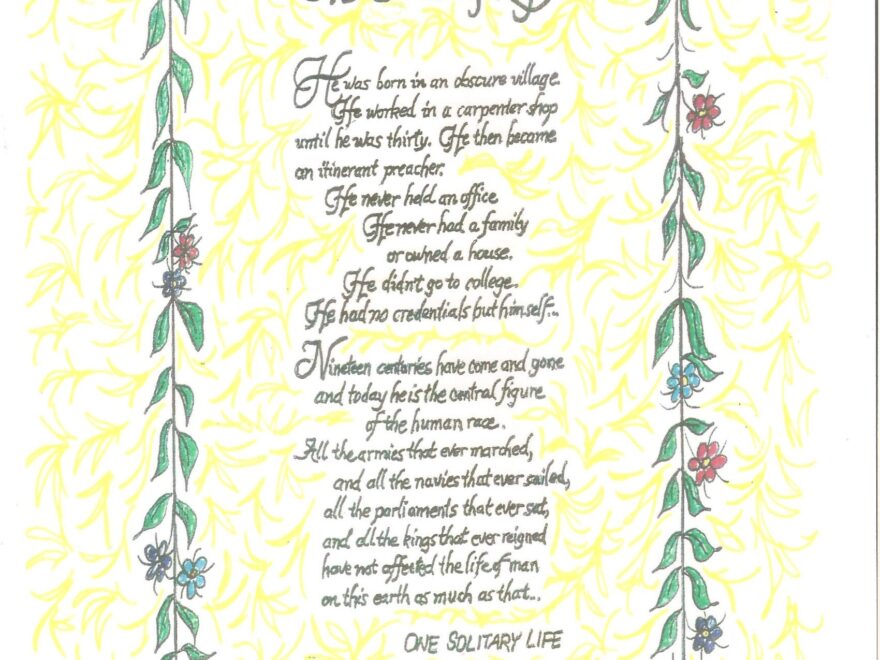 He was born in an obscure village.
He worked in a carpenter shop
until he was thirty. He then became
an itinerant preacher.
He never held an office
He never had a family
or owned a house.
He didn't go to college.
He had no credentials but himself...
Nineteen centuries have come and gone
and today he is the central figure
of the human race.
All the armies that ever marched,
and all the navies that ever sailed,
all the parliaments that ever sat,
and all the kings that ever reigned
have not affected the life of man
on this earth as much as that...
ONE SOLITARY LIFE